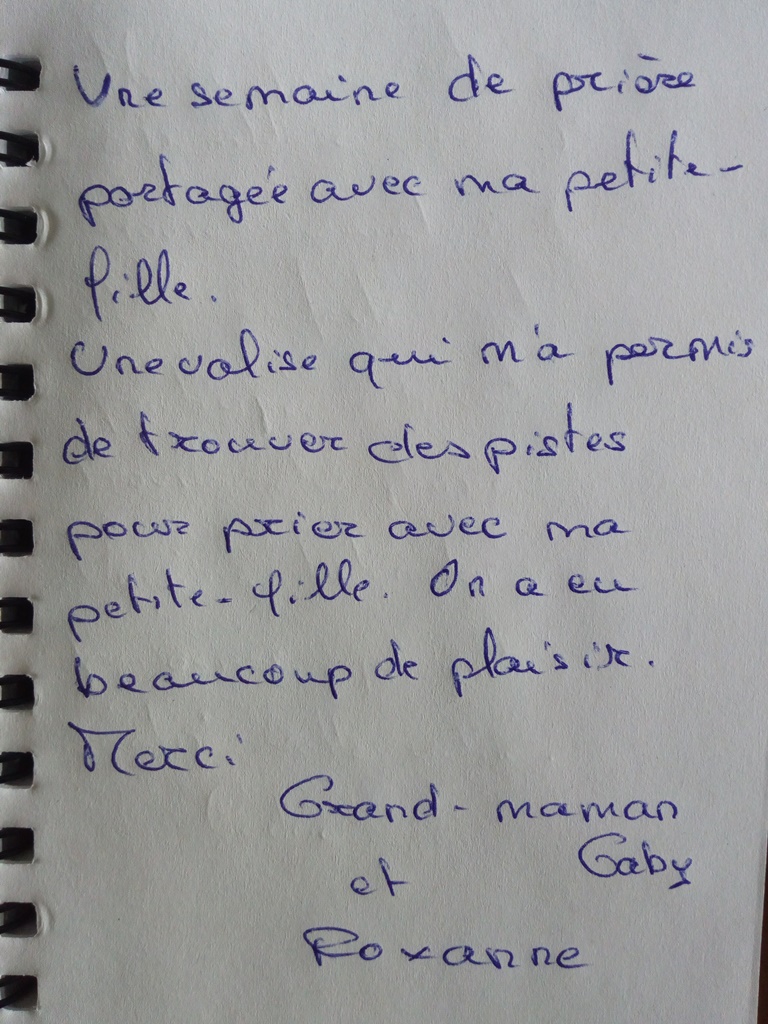 Une semaine de prière
partagée avec ma petite-
fille.
Une valise qui m'a permis
de trouver des pistes
pour prier avec ma
petite-fille. On a eu
beaucoup de plaisir.
Merci
Grand-maman
Gaby
et
Roxanne